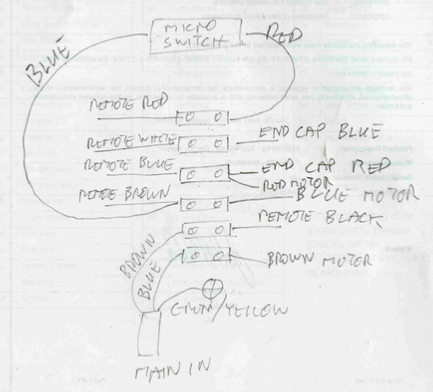 MICRO
SWITCH
RED
BLUE
REMOTE RED
REMOTE WHITE
END CAP BLUE
REMOTE BLUE
END CAP RED
RED MOTOR
REMOTE BROWN
BLUE MOTOR
REMOTE BLACK
BROWN
BLUE
BROWN MOTOR
/YELLOW
MAIN IN